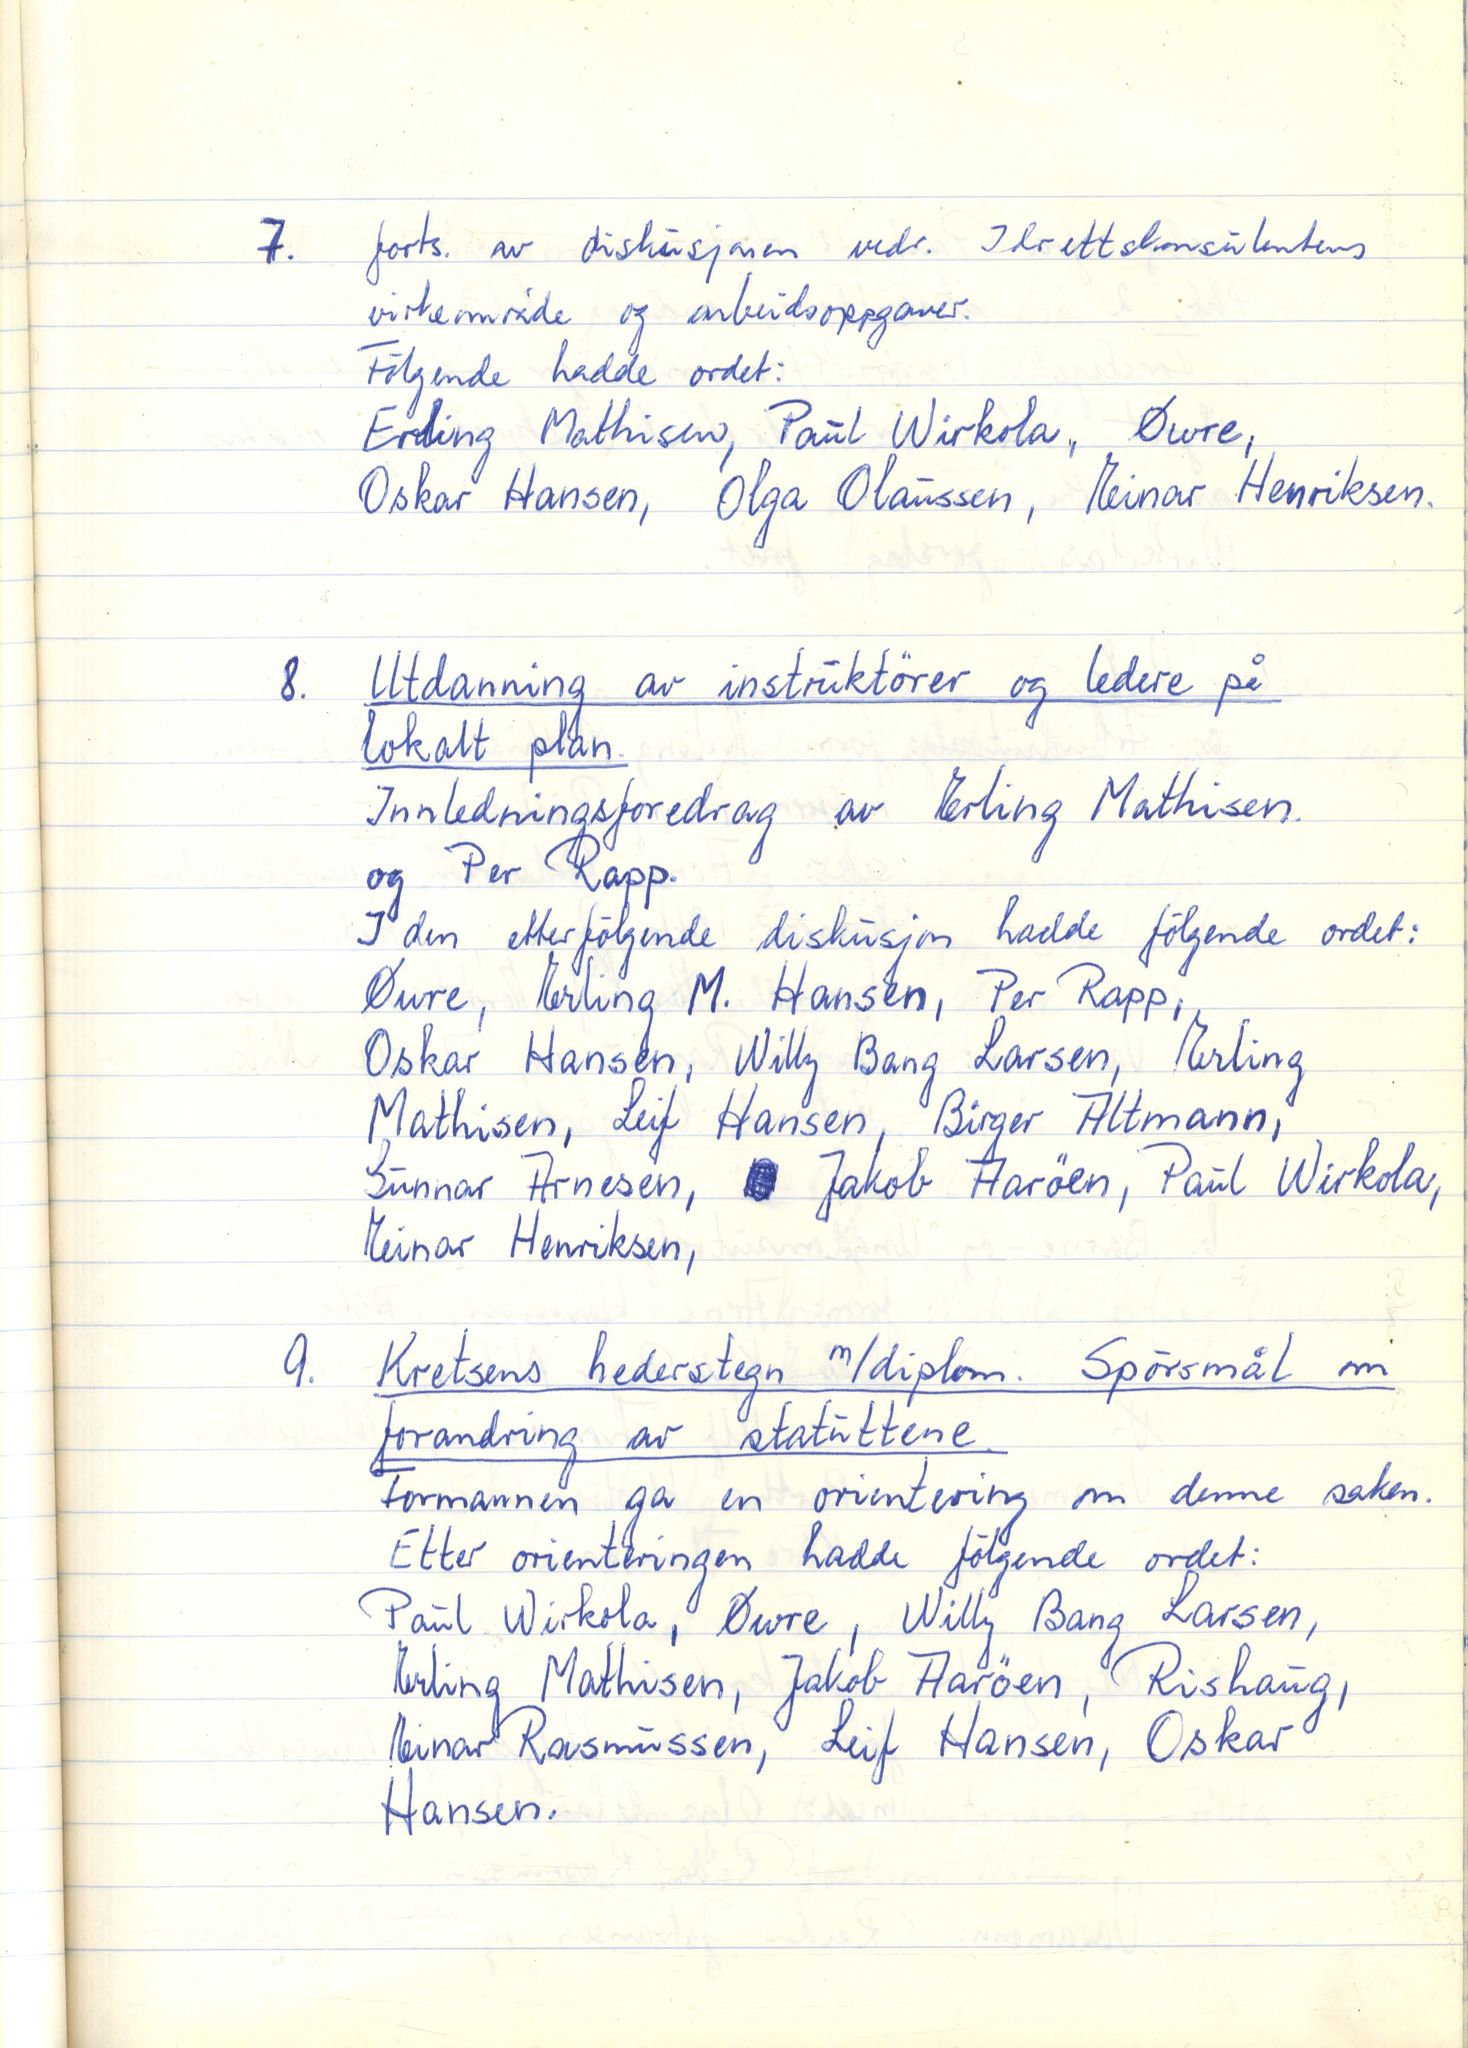 7. forts. av diskusjonen vedr. Idrettskonsulentens
virkeområde og arbeidsoppgaver.
Fölgende hadde ordet:
Erling Mathisen, Paul Wirkola, Øwre,
Oskar Hansen, Olga Olaussen, Einar Henriksen.
8. Utdanning av instruktörer og ledere på
lokalt plan.
Innledningsforedrag av Erling Mathisen.
og Per Rapp.
I den etterfölgende diskusjon hadde fölgende ordet:
Øwre, Erling M. Hansen, Per Rapp,
Oskar Hansen, Willy Bang Larsen, Erling
Mathisen, Leif Hansen, Birger Altmann,
Gunnar Arnesen, Jakob Aaröen, Paul Wirkola,
Einar Henriksen,
9. Kretsens hederstegn m/diplom. Spörsmål om
forandring av statuttene.
Formannen ga en orientering om denne saken.
Etter orienteringen hadde fölgende ordet:
Paul Wirkola, Øwre, Willy Bang Larsen,
Erling Mathisen, Jakob Aaröen, Rishaug,
Einar Rasmussen, Leif Hansen, Oskar
Hansen.